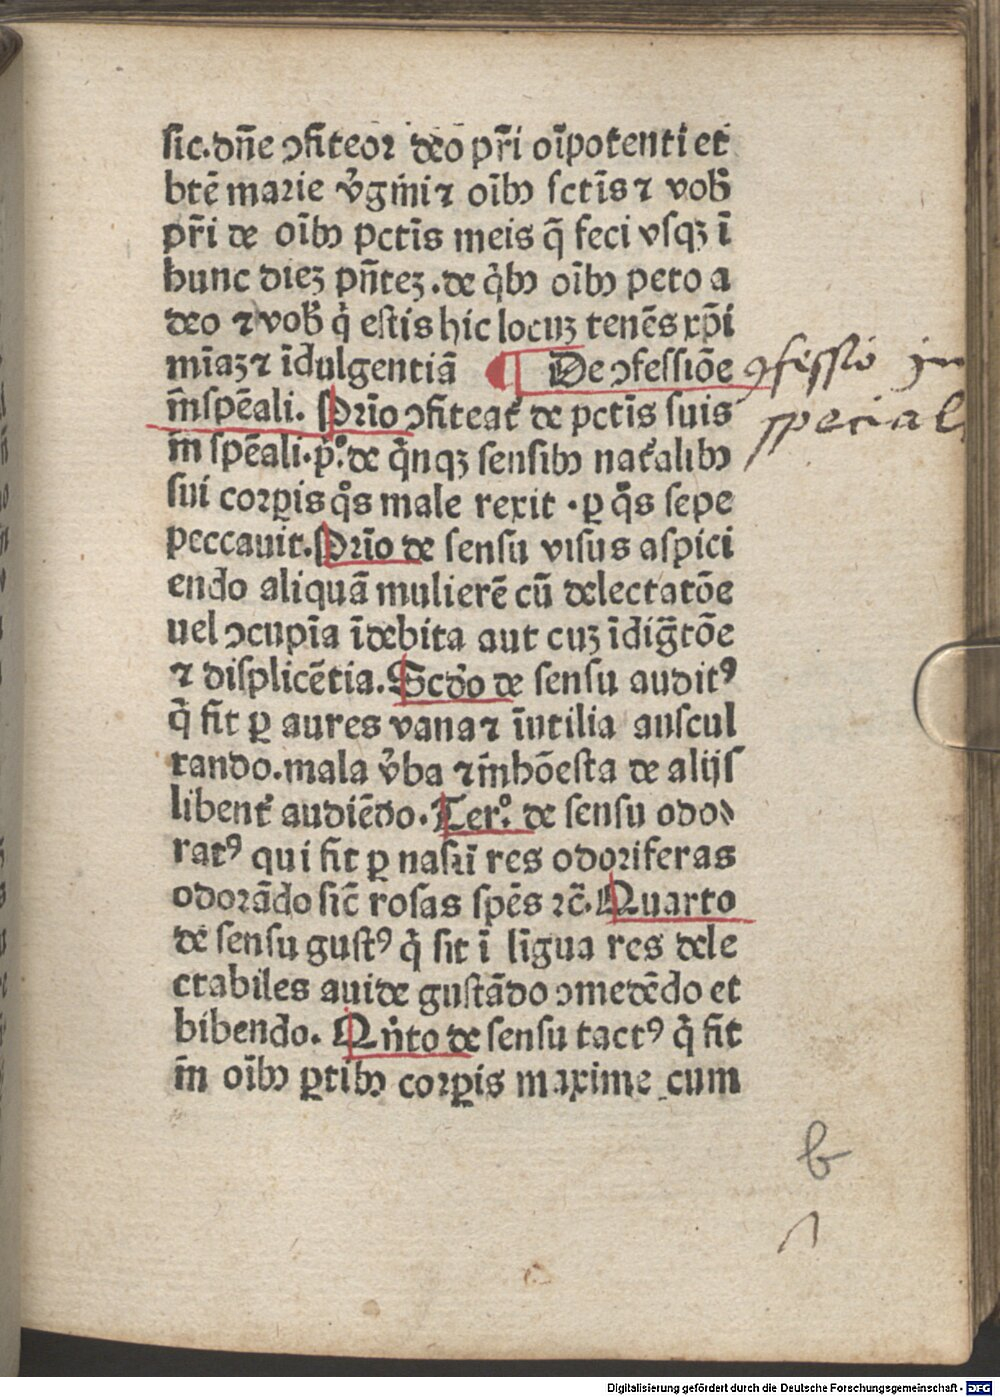 sic.dn̄e ꝯfiteor deo pr̄i oīpotenti et
btē marie v̓gīni ⁊ oībꝯ sctīs ⁊ vob̓
pr̄i de oībꝯ pctīs meis q̄ feci vsqꝫ ī
hunc dieꝫ pn̄teꝫ.de q̓bꝯ oībꝯ peto a
deo ⁊ vob̓ q̓ estis hic locuꝫ tenēs xp̄i
mīaꝫ ⁊ īdulgentiā De ꝯfessiōe
in̄spēali. Prīo ꝯfiteat᷑ de pctīs suis
in̄ spēali.pº.de q̓nqꝫ sensibꝯ nat᷑alibꝯ
sui corꝑis q̊s male rexit . ꝑ q̊s sepe
peccauit. Prīo de sensu visus aspici
endo aliquā mulierē cū delectatōe
uel ꝯcupīa īdebita aut cuꝫ īdig̃tōe
⁊ displicētia. Scd̓o de sensu auditꝰ
q̓ fit ꝑ aures vana ⁊ īutilia auscul
tando.mala v̓ba ⁊ in̄hōesta de alijs
libent᷑ audiēdo. Terº. de sensu odo⸗
ratꝰ qui fit ꝑ nasū res odoriferas
odorādo sic̄ rosas spēs ⁊c̄. Quarto
de sensu gustꝰ q̓ fit ī līgua res dele
ctabiles auide gustādo ꝯmedēdo et
bibendo. Qn̓to de sensu tactꝰ q̓ fit
in̄ oībꝯ ꝑtibꝯ corꝑis maxime cum
ꝯfessio in
special
b
1
Digitalisierung gefördert durch die Deutsche Forschungsgemeinschaft - DFG